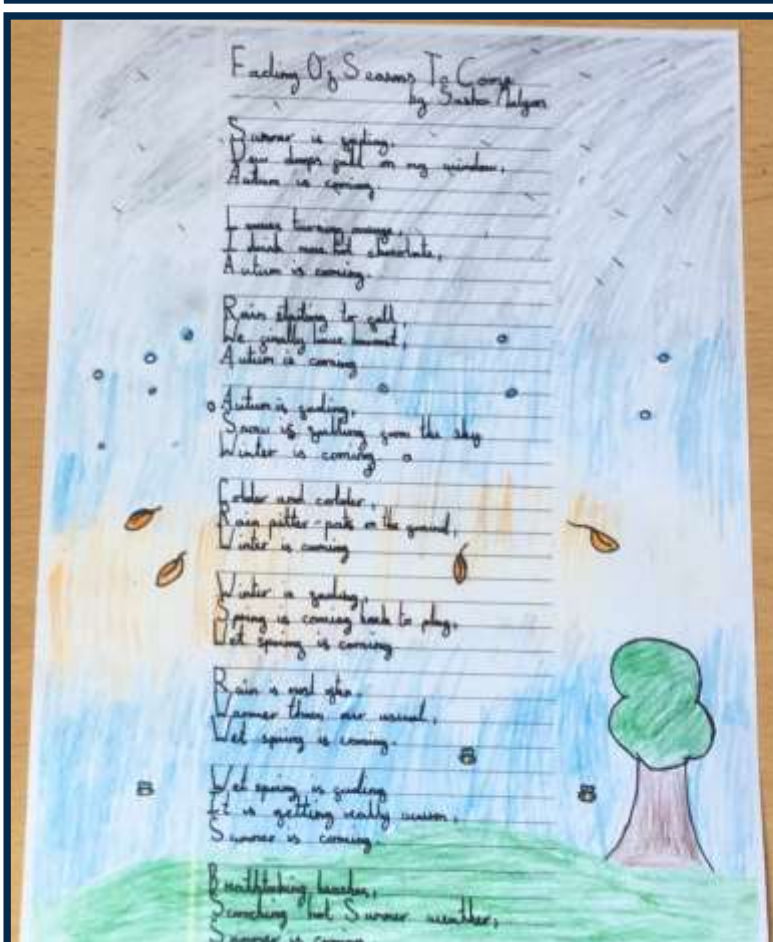 Fading Of Seasons To Come
by Sasha
Summer is fading,
Dew drops fall on my window,
Autum is coming.
Leaves turning orange,
I drink more hot chocolate,
Autum is coming.
Rain starting to fall,
We finally have harvest,
Autum is coming
Autum is fading,
Snow is falling from the sky
Winter is coming
Colder and colder,
Rain pitter-pats on the ground,
Winter is coming
Winter is fading,
Spring is coming back to play,
Wet spring is coming
Rain is
Warmer than our usual,
Wet spring is coming.
Wet spring is fading
It is getting really warm,
Summer is coming.
Breathtaking beaches,
Scorching hot Summer weather,
Summer is coming